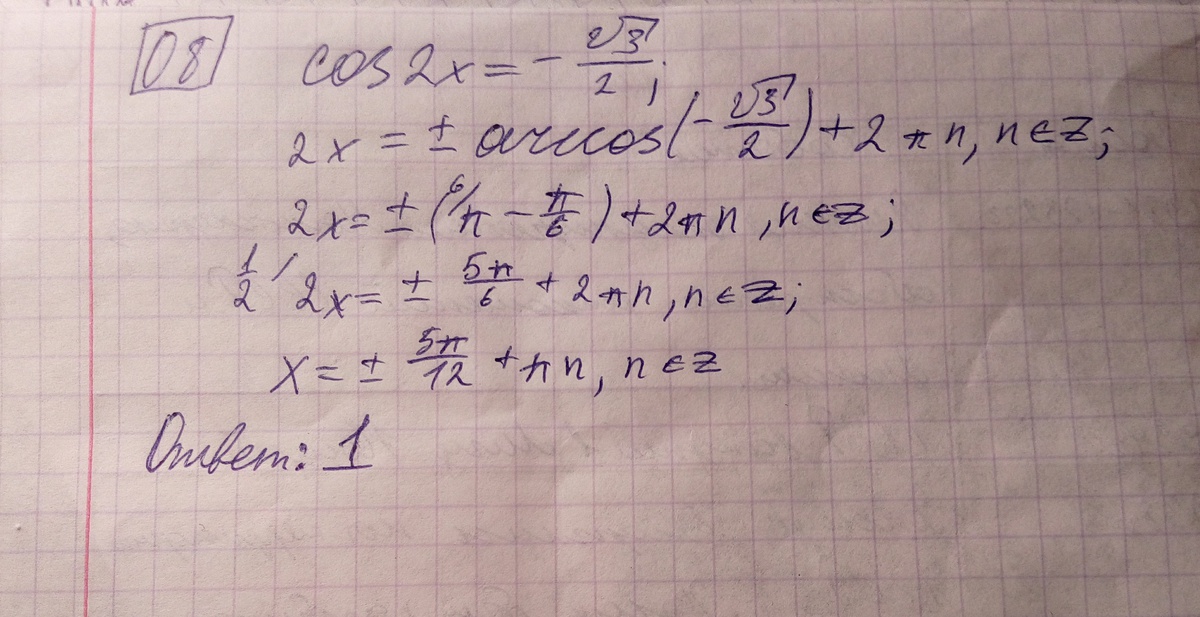 08 cos 2x = -√3/2;
2x = ± arccos(-√3/2) + 2πn, n∈Z;
2x = ± (⁶⁄π - π/6) + 2πn, n∈Z;
1/2 / 2x = ± 5π/6 + 2πn, n∈Z;
x = ± 5π/12 + πn, n∈Z
Ответ: 1